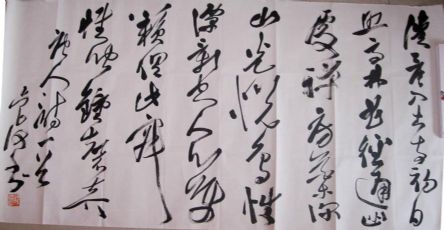 清晨入古寺初日
照高林曲径通幽
處禅房花木深
山光悦鸟性
潭影空人心万
籁俱此寂
惟聞鐘磬音
唐人诗一首